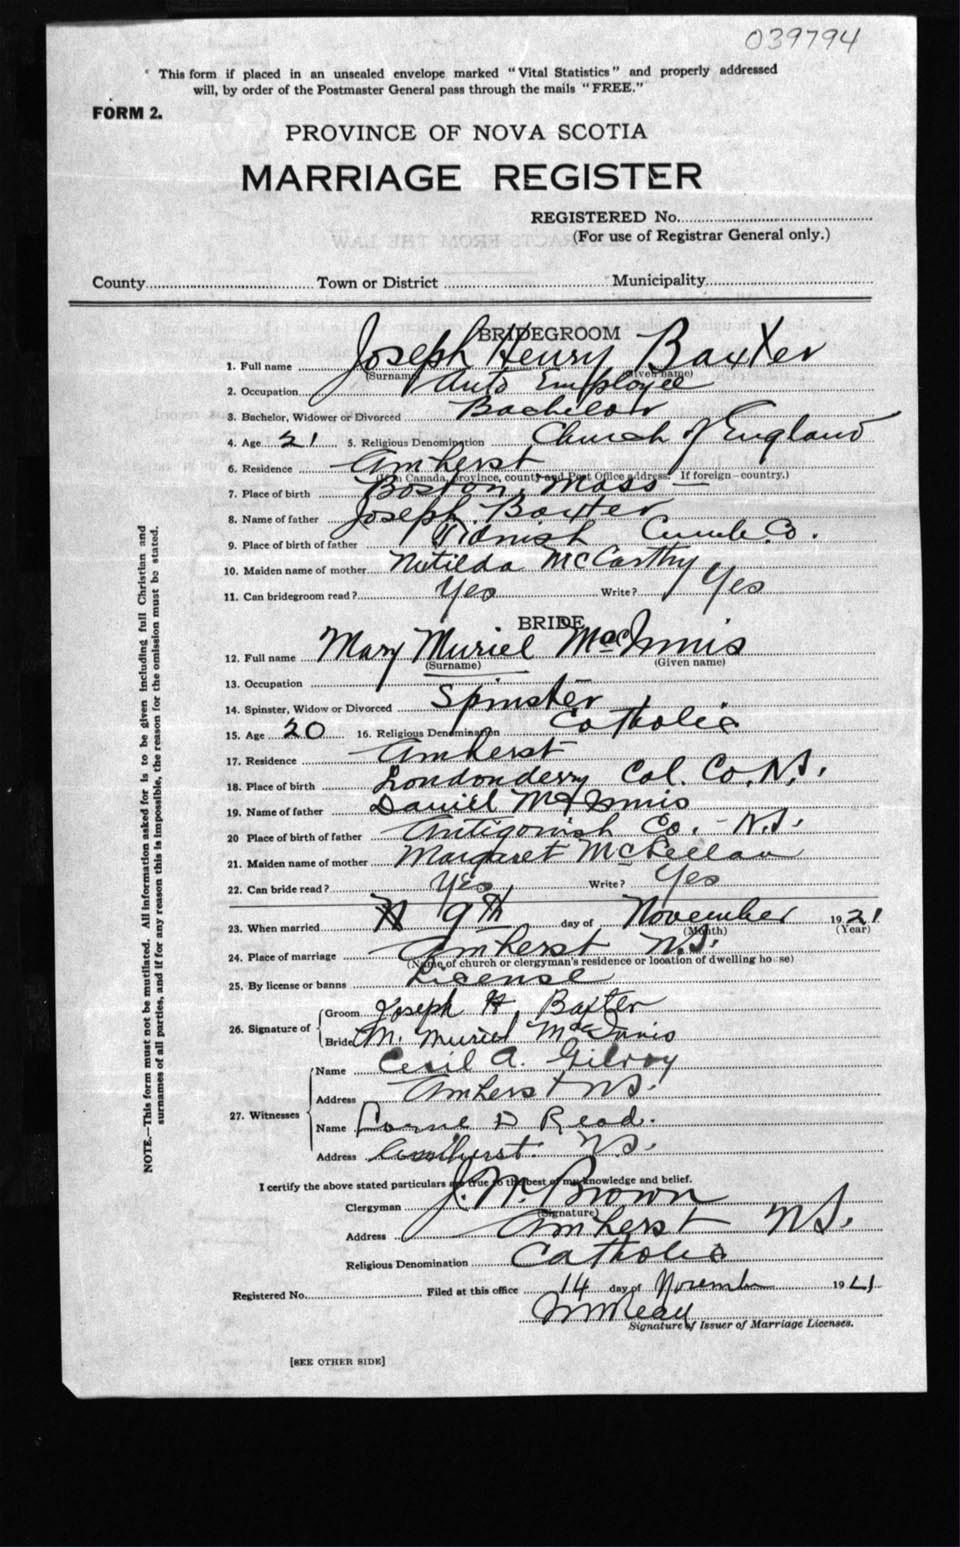 039794
This form if placed in an unsealed envelope marked "Vital Statistics" and properly addressed
will, by order of the Postmaster General pass through the mails "FREE."
FORM 2.
PROVINCE OF NOVA SCOTIA
MARRIAGE REGISTER
REGISTERED No.
(For use of Registrar General only.)
County Town or District Municipality
BRIDEGROOM
1. Full name Joseph Henry Baxter
(Surname) (Given name)
2. Occupation Auto Employee
3. Bachelor, Widower or Divorced Bachelor
4. Age 21 5. Religious Denomination Church of England
6. Residence Amherst
(If in Canada, province, county and Post Office address. If foreign—country.)
7. Place of birth Boston, Mass
8. Name of father Joseph Baxter
9. Place of birth of father Cumb. Co.
10. Maiden name of mother Matilda McCarthy
11. Can bridegroom read? Yes Write? Yes
BRIDE
12. Full name Mary Muriel MacInnis
(Surname) (Given name)
13. Occupation
14. Spinster, Widow or Divorced Spinster
15. Age 20 16. Religious Denomination Catholic
17. Residence Amherst
18. Place of birth Londonderry Col. Co. N.S.
19. Name of father Daniel McInnis
20 Place of birth of father Antigonish Co. - N.S.
21. Maiden name of mother Margaret McLellan
22. Can bride read? Yes Write? Yes
23. When married 9th day of November 1921
(Month) (Year)
24. Place of marriage Amherst N.S.
(Name of church or clergyman's residence or location of dwelling house)
25. By license or banns License
26. Signature of Groom Joseph H. Baxter
Bride M. Muriel MacInnis
27. Witnesses Name Cecil A. Gilroy
Address Amherst N.S.
Name D Read.
Address Amherst. N.S.
I certify the above stated particulars are true to the best of my knowledge and belief.
Clergyman J. W. Brown
(Signature)
Address Amherst N.S.
Religious Denomination Catholic
Registered No. Filed at this office 14 day of November 1921
Signature of Issuer of Marriage Licenses.
[SEE OTHER SIDE]
NOTE.—This form must not be mutilated. All information asked for is to be given including full Christian and
surnames of all parties, and if for any reason this is impossible, the reason for the omission must be stated.